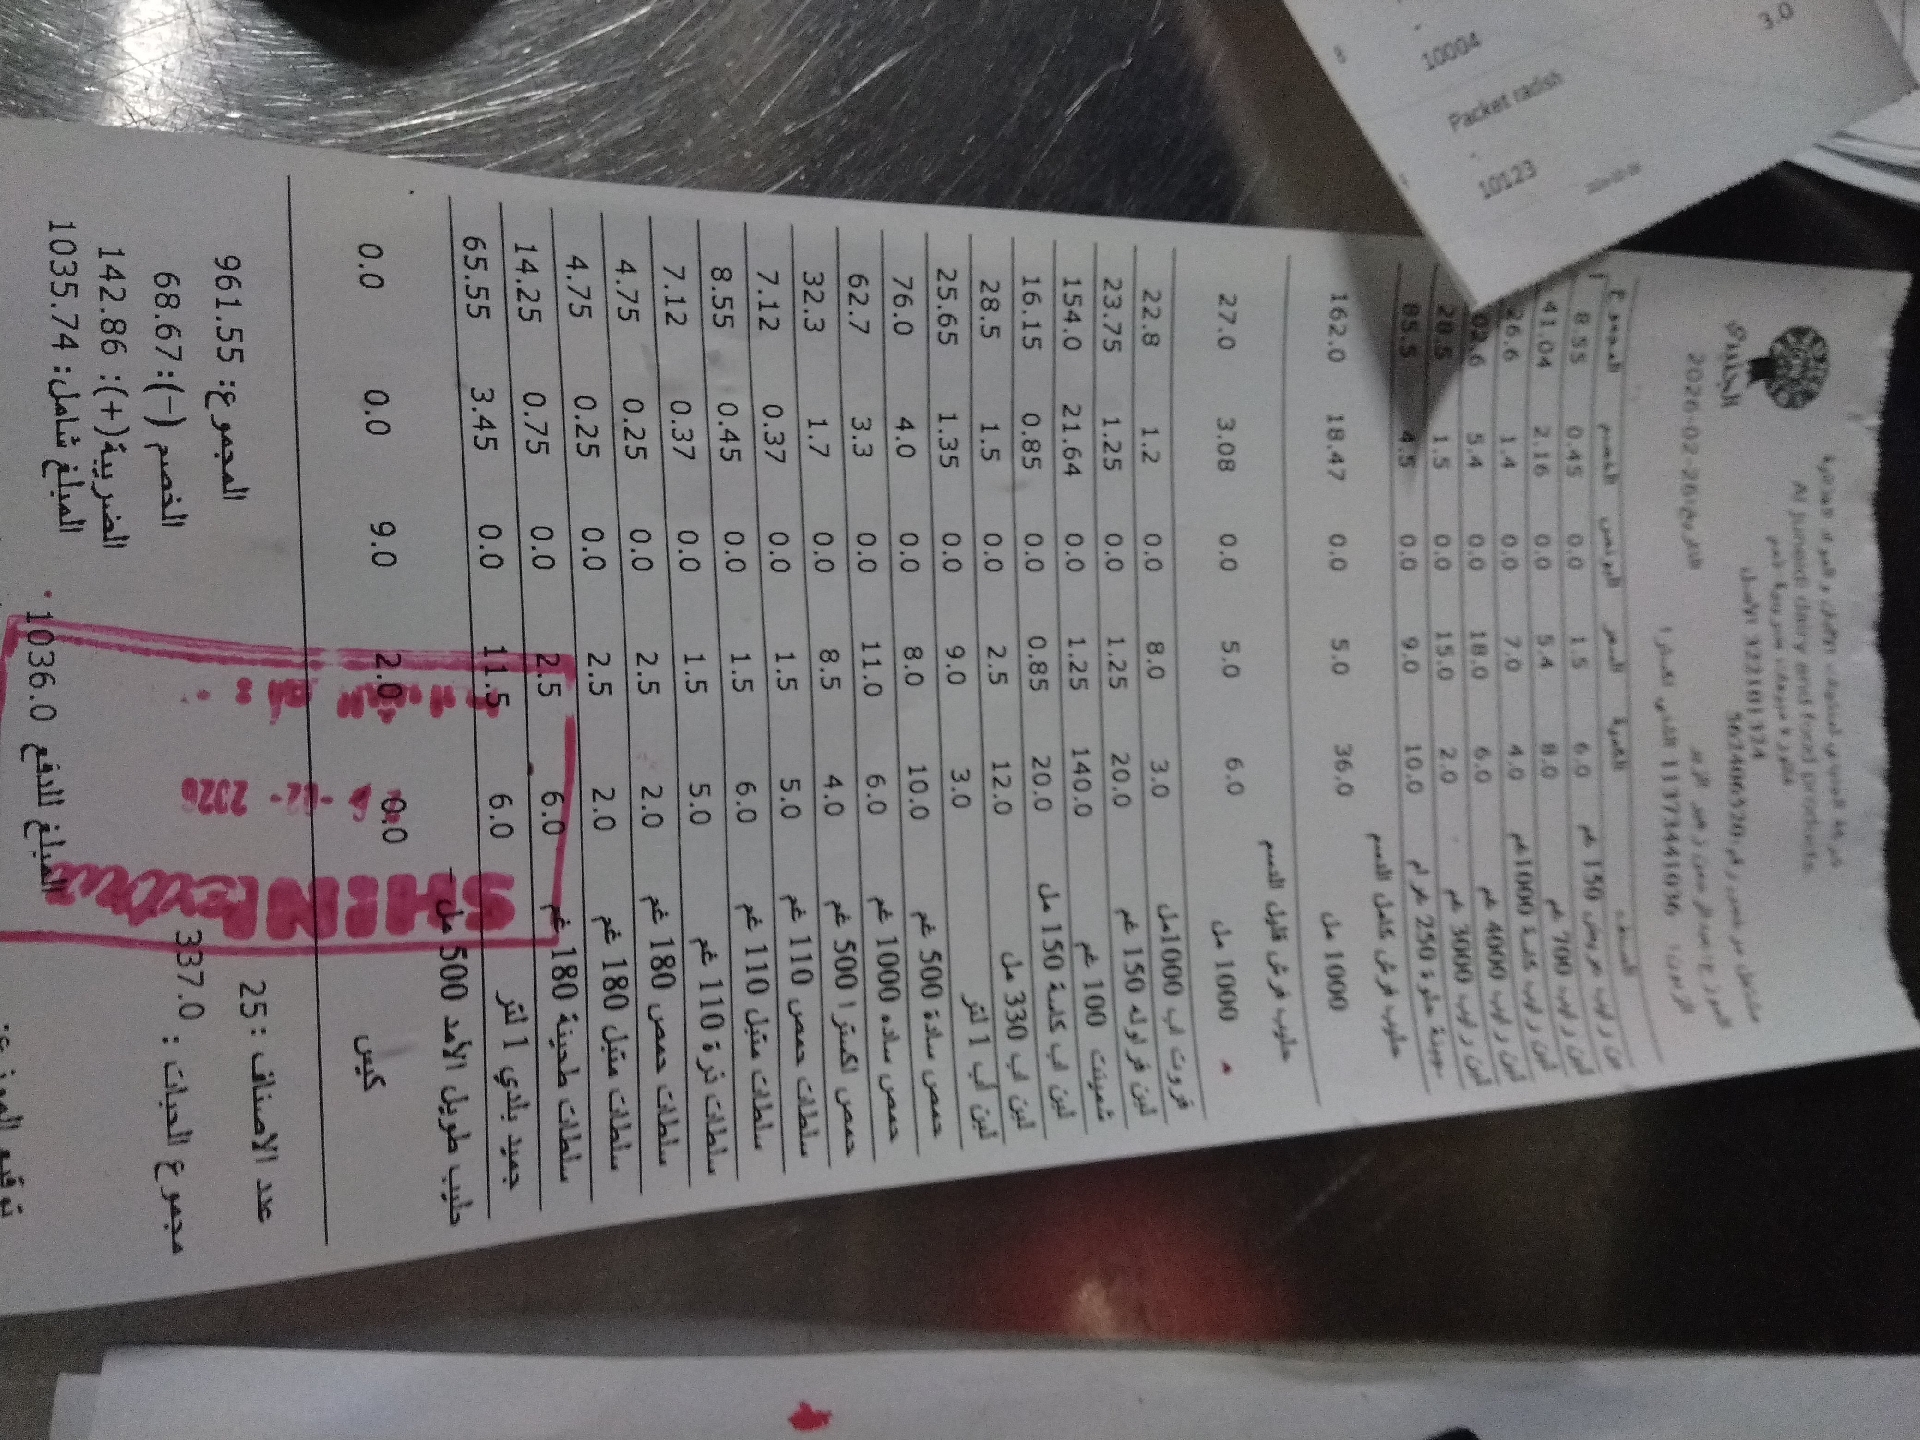 الجنيدي
Al Juneidi dairy and food products
التاريخ: 2026-02-26
الصنف الكمية السعر البونص الخصم المجموع
لبن رايب عريض 150 غم 6.0 1.5 0.0 0.45 8.55
لبن رايب 700 غم 8.0 5.4 0.0 2.16 41.04
لبن رايب كاسة 1000 غم 4.0 7.0 0.0 1.4 26.6
لبن رايب 4000 غم 6.0 18.0 0.0 5.4
لبن رايب 3000 غم 2.0 15.0 0.0 1.5 28.5
250 غرام 10.0 9.0 0.0 4.5 85.5
حليب فرش كامل الدسم
1000 مل 36.0 5.0 0.0 18.47 162.0
حليب فرش قليل الدسم
1000 مل 6.0 5.0 0.0 3.08 27.0
فروت اب 1000 مل 3.0 8.0 0.0 1.2 22.8
لبن فراوله 150 غم 20.0 1.25 0.0 1.25 23.75
شمينت 100 غم 140.0 1.25 0.0 21.64 154.0
لبن اب كاسة 150 مل 20.0 0.85 0.0 0.85 16.15
لبن اب 330 مل 12.0 2.5 0.0 1.5 28.5
لبن اب 1 لتر 3.0 9.0 0.0 1.35 25.65
حمص سادة 500 غم 10.0 8.0 0.0 4.0 76.0
حمص ساده 1000 غم 6.0 11.0 0.0 3.3 62.7
حمص اكسترا 500 غم 4.0 8.5 0.0 1.7 32.3
سلطات حمص 110 غم 5.0 1.5 0.0 0.37 7.12
سلطات متبل 110 غم 6.0 1.5 0.0 0.45 8.55
سلطات ذرة 110 غم 5.0 1.5 0.0 0.37 7.12
سلطات حمص 180 غم 2.0 2.5 0.0 0.25 4.75
سلطات متبل 180 غم 2.0 2.5 0.0 0.25 4.75
سلطات طحينة 180 غم 6.0 2.5 0.0 0.75 14.25
جميد بلدي 1 لتر 6.0 11.5 0.0 3.45 65.55
حليب طويل الأمد 500 مل -
كيس 0.0 2.0 9.0 0.0 0.0
عدد الاصناف: 25 المجموع: 961.55
مجموع الحبات: 337.0 الخصم (-): 68.67
الضريبة (+): 142.86
المبلغ شامل: 1035.74
المبلغ للدفع 1036.0
-02- 2026
10004
3.0
Packet radish
10123